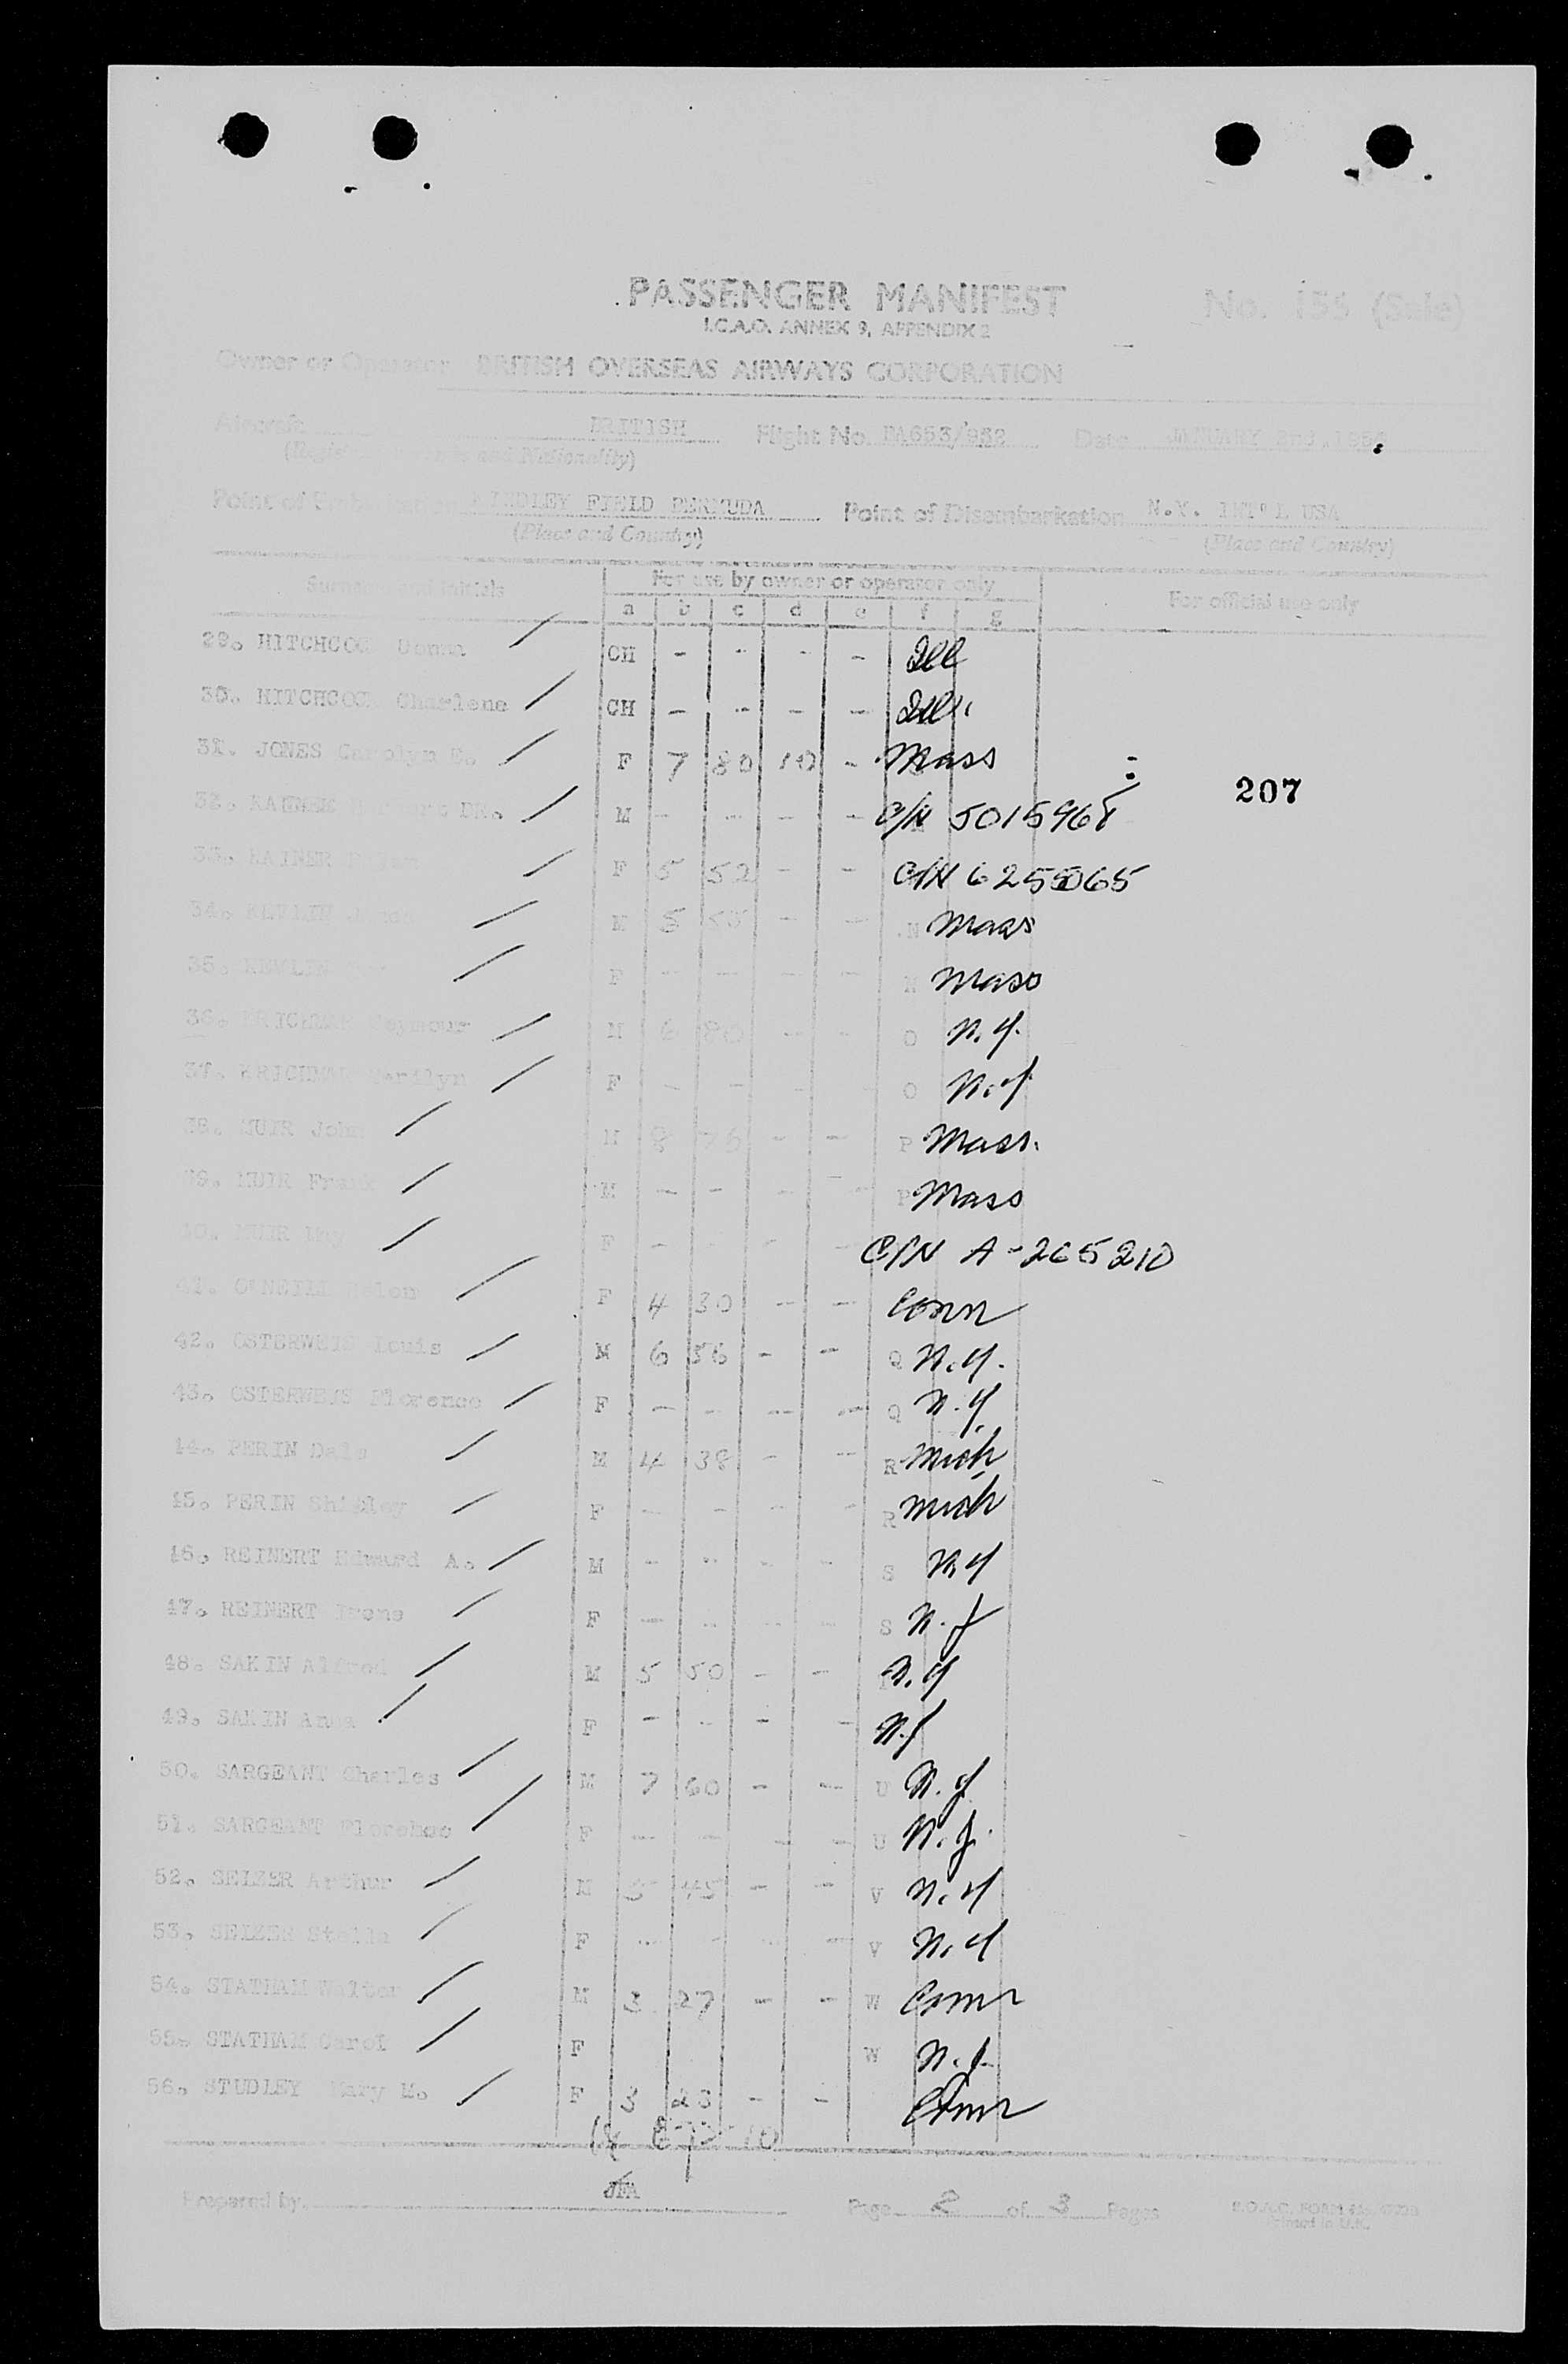 PASSENGER MANIFEST
No. 155 (Sale)
I.C.A.O. ANNEX 9, APPENDIX 2
Owner or Operator BRITISH OVERSEAS AIRWAYS CORPORATION
Aircraft BRITISH Flight No. BA653/952 Date JANUARY 2nd.
and Nationality)
Point of Embarkation KINDLEY FIELD BERMUDA Point of Disembarkation N.Y. INT'L USA
(Place and Country) (Place and Country)
Surname and Initials For use by owner or operator only For official use only
a b c d e f g
29. HITCHCOCK Donna CH - - - - Ill
30. HITCHCOCK Charlene CH - - - - Ill.
31. JONES Carolyn E. F 7 80 10 - Mass
207
32. DR. M - - - - C/N 5015968
33. KAINER F 5 52 - - C/N 6255065
34. KEVLIN M 5 - - N Mass
35. KEVLIN F - - - - N Mass
36. Seymour M 6 80 - - O N.Y.
37. Marilyn F - - - O N.Y.
38. MUIR John M 8 76 - - P Mass.
39. MUIR Frank M - - - - P Mass
40. MUIR May F - - - C/N A-265210
41. O'NEILL Helen F 4 30 - - Conn
42. OSTERWEIS Louis M 6 56 - - Q N.Y.
43. OSTERWEIS Florence F - - - - Q N.Y.
44. PERIN Dale M 4 38 - - R Mich
45. PERIN Shirley F - - - - R Mich
46. REINERT Edward A. M - - - - S N.Y
47. REINERT Irene F - - - - S N.J
48. SAKIN Alfred M 5 50 - - N.Y
49. SAKIN Anna F - - - - N.Y
50. SARGEANT Charles M 7 60 - - U N.J.
51. SARGEANT Florence F - - - - U N.J.
52. SELZER Arthur M 5 45 - - V N.Y
53. SELZER Stella F - - - - V N.Y
54. STATHAM Walter M 3 27 - - W Conn
55. STATHAM Carol F W N.J.
56. STUDLEY Mary M. F 3 23 - - Conn
Prepared by JFA Page 2 of 3 Pages
B.O.A.C. FORM
Printed in U.K.